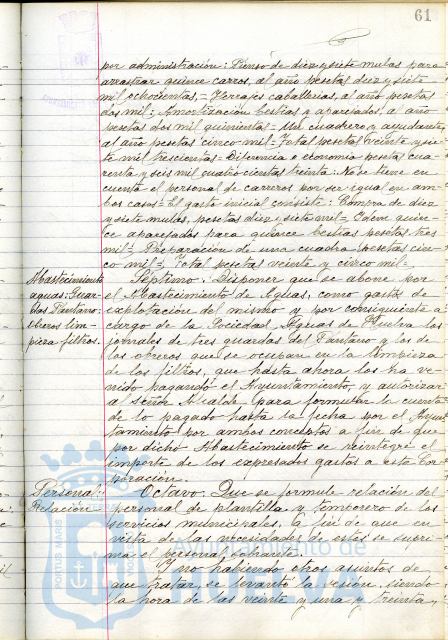 61
por administración: Pienso de diez y siete mulas para
arrastrar quince carros, al año pesetas diez y siete
mil ochocientas,= Herrajes caballerías, al año pesetas
dos mil; Amortización bestias y aparejados, al año
pesetas dos mil quinientas= Un cuadrero y ayudante
al año pesetas cinco mil= Total pesetas veinte y sie-
te mil trescientas= Diferencia o economía pesetas cua-
renta y seis mil cuatrocientas treinta: No se tiene en
cuenta el personal de carreros por ser igual en am-
bos casos= El gasto inicial consiste: Compra de diez
y siete mulas, pesetas diez y siete mil= Idem quin-
ce aparejados para quince bestias pesetas tres
mil= Preparación de una cuadra pesetas cin-
co mil= Total pesetas veinte y cinco mil=
Abastecimiento
aguas: Guar-
das Pantano:
obreros lim-
pieza filtros.
Septimo: Disponer que se abone por
el Abastecimiento de Aguas, como gastos de
explotación del mismo y por consiguiente a
cargo de la Sociedad Aguas de Huelva los
jornales de tres guardas del Pantano y los de
los obreros que se ocupan en la limpieza
de los filtros, que hasta ahora los ha ve-
nido pagando el Ayuntamiento, y autorizar
al señor Alcalde para formular la cuenta
de lo pagado hasta la fecha por el Ayun-
tamiento por ambos conceptos a fin de que
por dicho Abastecimiento se reintegre el
importe de los expresados gastos a esta Cor-
poración.
Personal:
Relación
Octavo: Que se formule relación del
personal de plantilla y temporero de los
servicios municipales, a fin de que en
vista de las necesidades de estos se supri-
ma el personal sobrante.
Y no habiendo otros asuntos de
que tratar se levantó la sesión, siendo
la hora de las veinte y una y treinta,
PORTUS MARIS
Ayuntamiento de